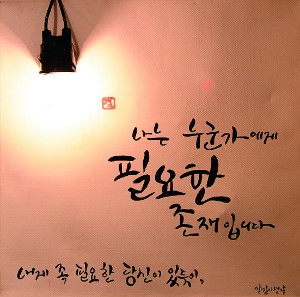 나는 누군가에게
필요한
존재입니다
내게 꼭 필요한 당신이 있듯이,